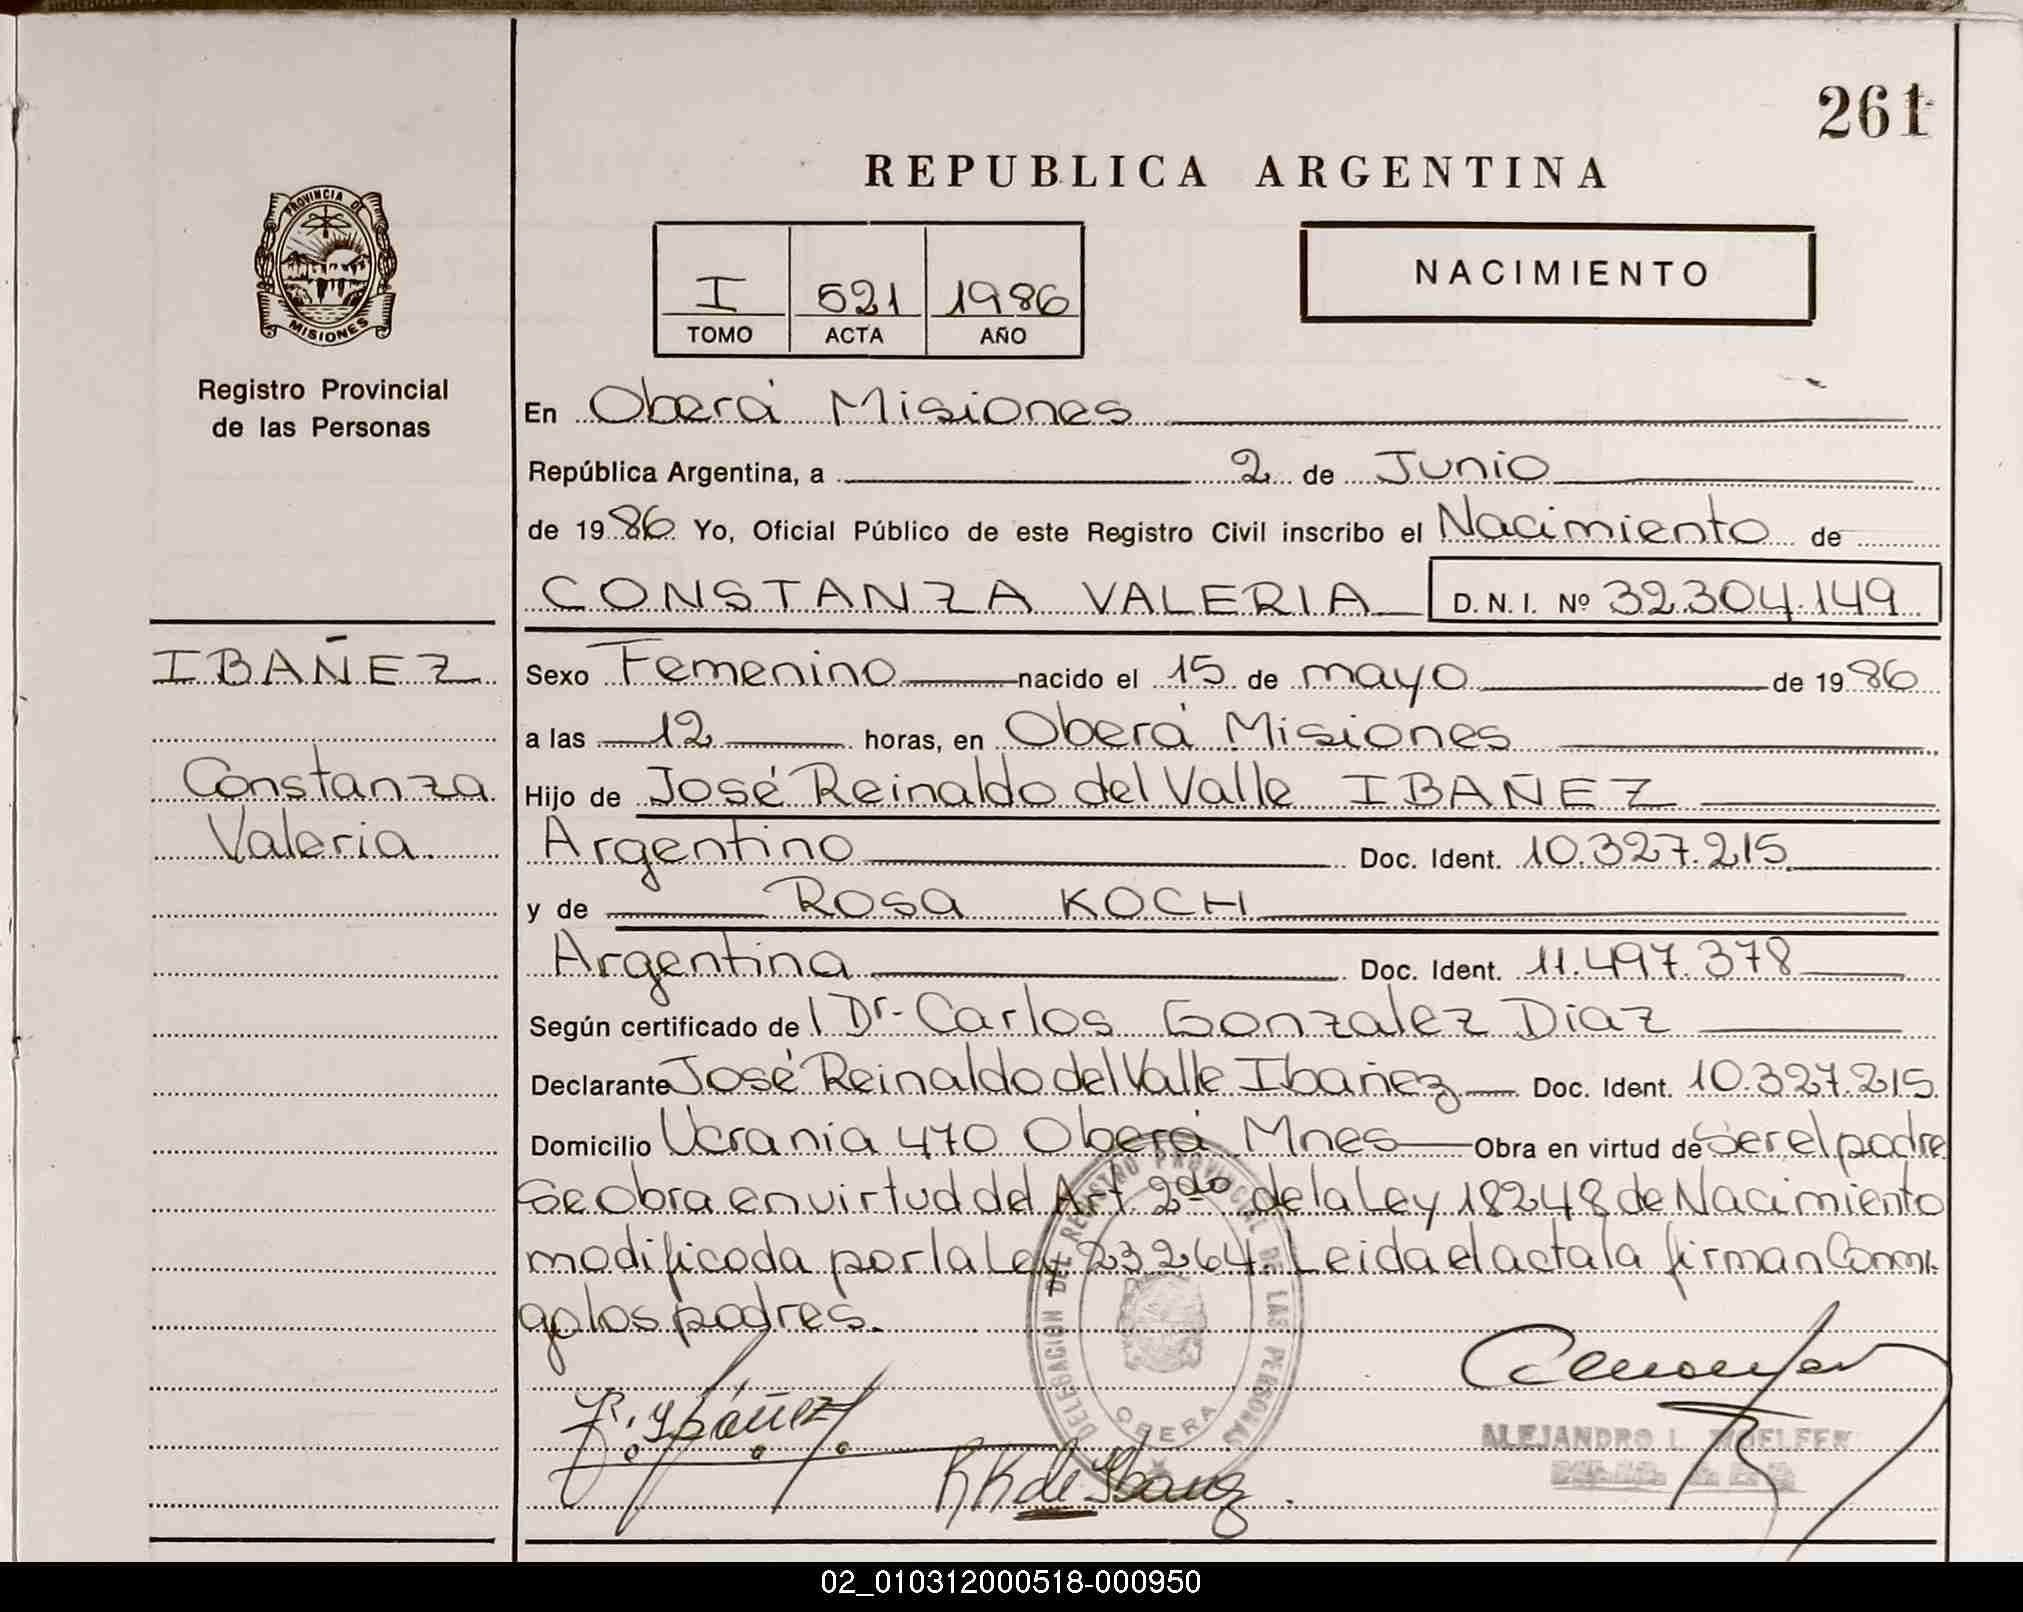 261
REPUBLICA ARGENTINA
PROVINCIA DE
MISIONES
Registro Provincial
de las Personas
I 521 1986
TOMO ACTA AÑO
NACIMIENTO
En Oberá Misiones
República Argentina, a 2 de Junio
de 1986 Yo, Oficial Público de este Registro Civil inscribo el Nacimiento de
CONSTANZA VALERIA D.N.I. Nº 32.304.149
IBAÑEZ
Constanza
Valeria.
Sexo Femenino nacido el 15 de mayo de 1986
a las 12 horas, en Oberá Misiones
Hijo de José Reinaldo del Valle IBAÑEZ
Argentino Doc. Ident. 10.327.215
y de Rosa KOCH
Argentina Doc. Ident. 11.497.378
Según certificado de l Dr- Carlos Gonzalez Diaz
Declarante José Reinaldo del Valle Ibañez Doc. Ident. 10.327.215.
Domicilio Ucrania 470 Oberá Mnes Obra en virtud de Ser el padre
Se Obra en virtud del Art 2do de la Ley 18248 de Nacimiento
modificada por la Ley 23264. Leida el acta la firman Conmi-
go los padres.
DELEGACION DEL REGISTRO PROVINCIAL DE LAS PERSONAS
OBERA
R. Ibáñez
RK de Ibañez.
ALEJANDRO L.
02_010312000518-000950